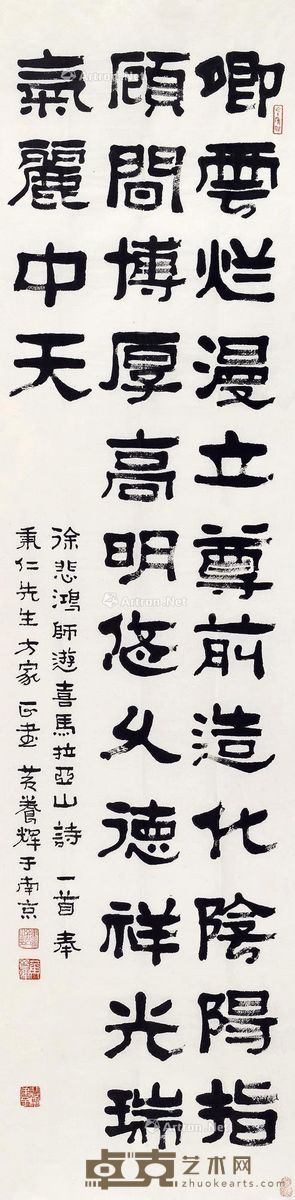 卿雲烂漫立尊前造化陰陽指
顧間博厚高明悠久德祥光瑞
氣麗中天
徐悲鴻師遊喜馬拉亞山詩一首奉
秉仁先生方家正畫 黄養輝于南京
Artron.Net
Artron.Net
Artron.Net
Artron.Net
卓克艺术网
www.zhuokearts.com